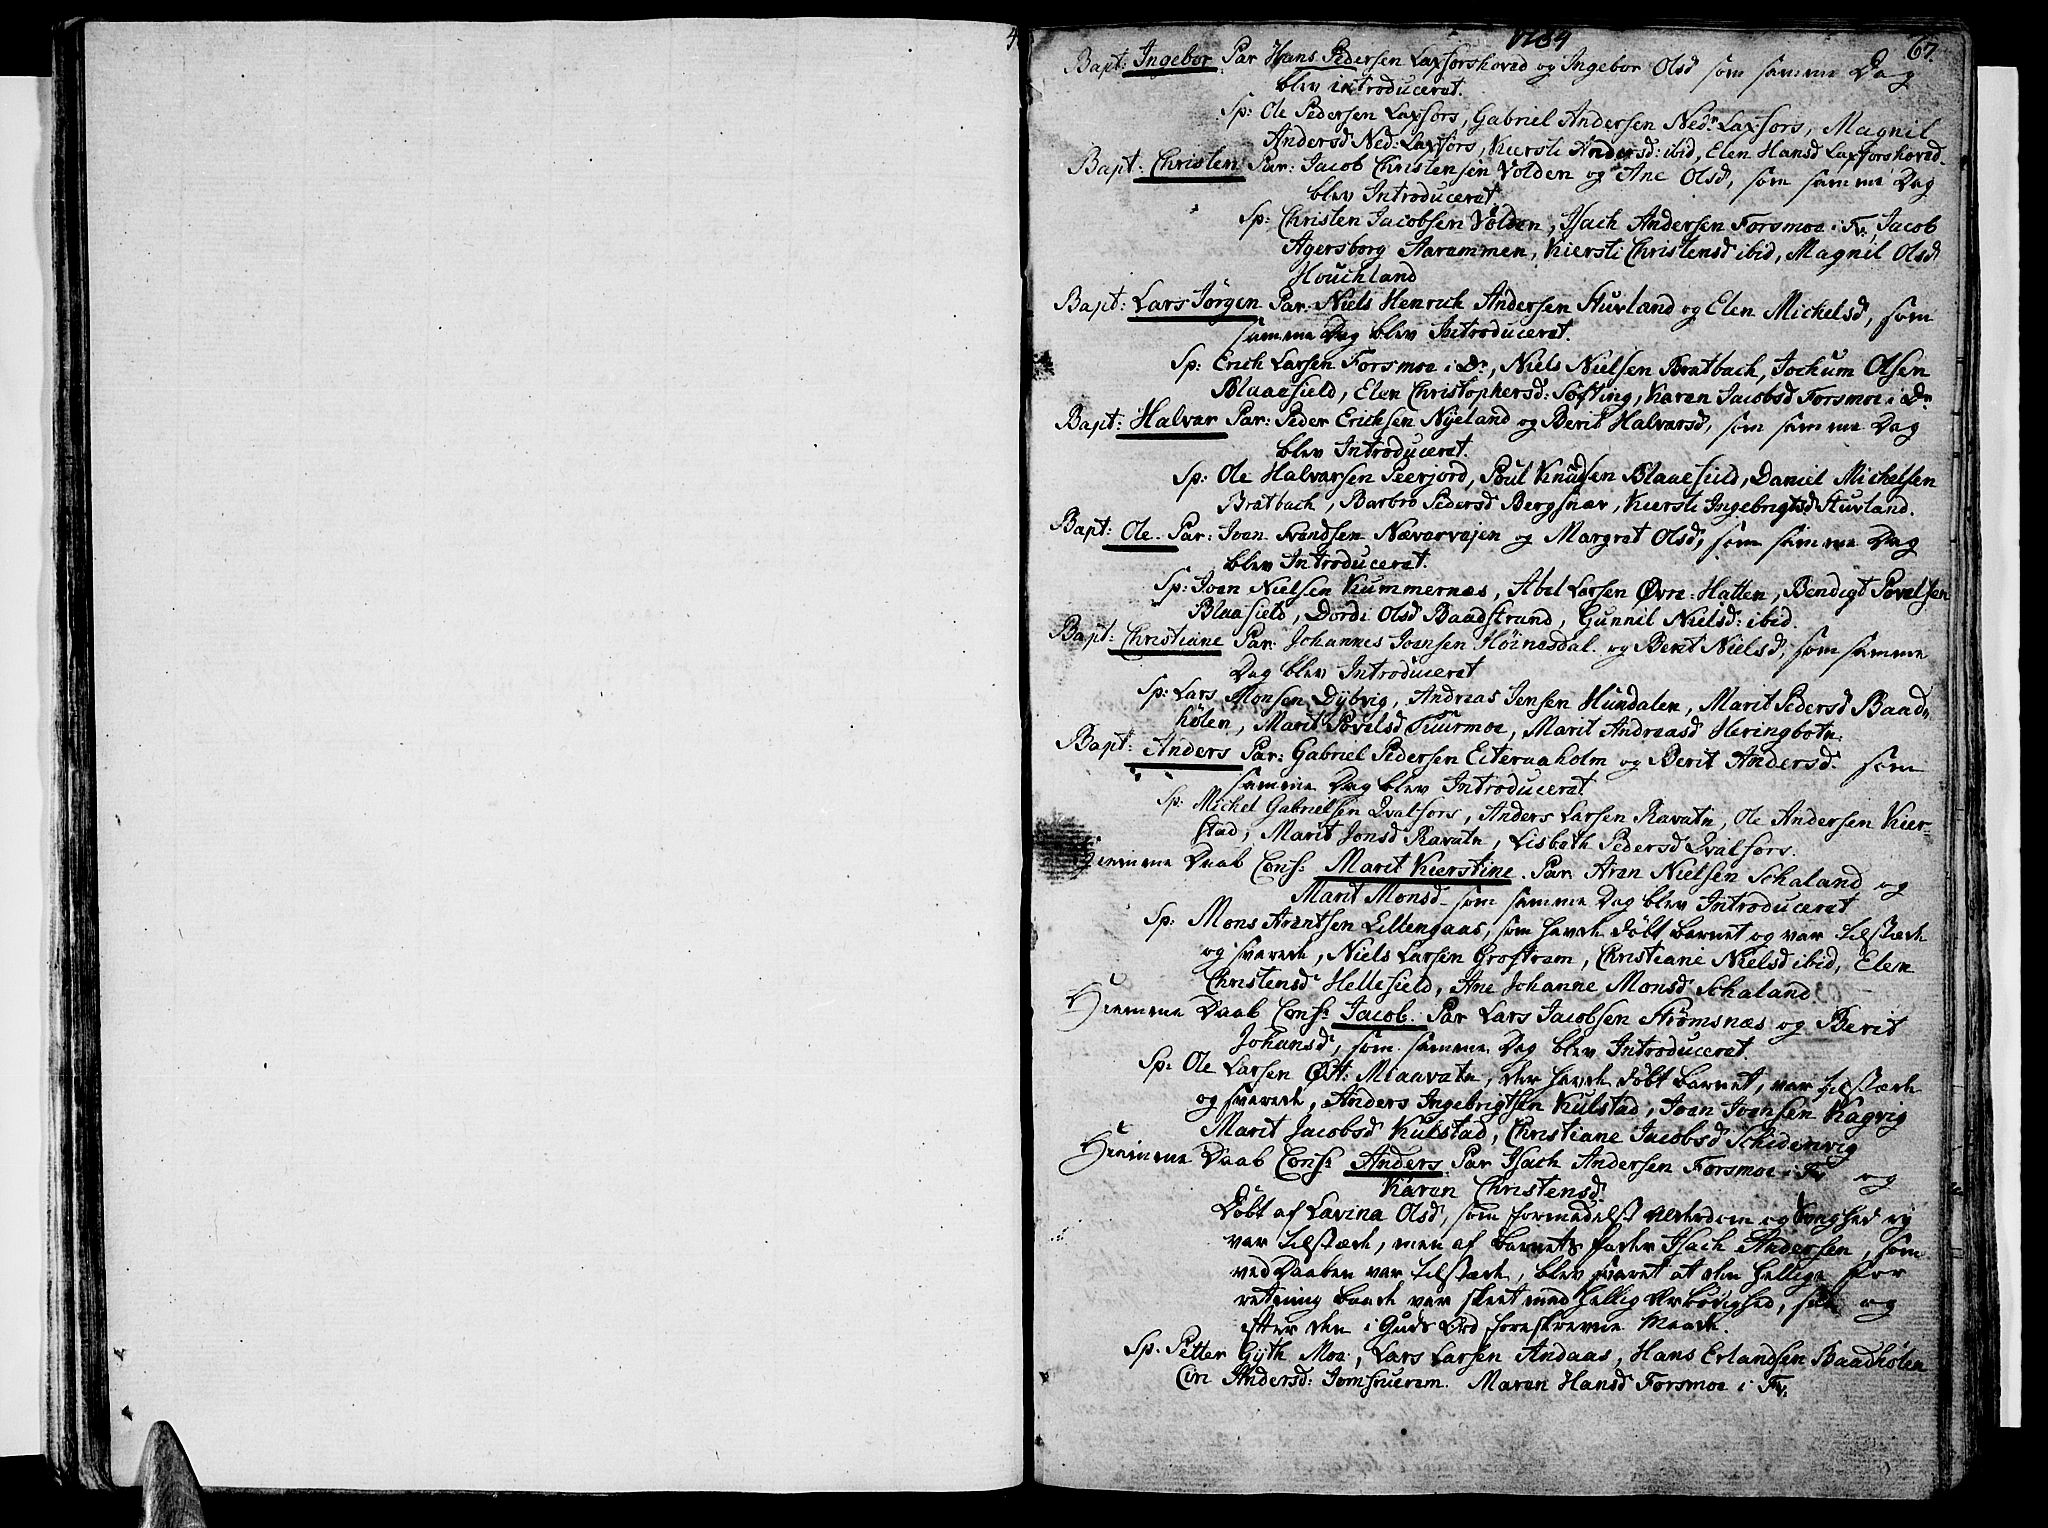 1784
67.
Bapt: Ingebor Par Hans Pedersen Laxforshoved og Ingebor Olsd som samme Dag
blev introduceret.
Sp: Ole Pedersen Laxfors, Gabriel Andersen Nedr Laxfors, Magnil
Andersd Ned: Laxfors, Kiersti Andersd: ibid, Elen Hansd Laxforshoved.
Bapt: Christen Par: Jacob Christensen Volden og Ane Olsd, som samme Dag
blev Introduceret
Sp: Christen Jacobsen Volden, Isach Andersen Forsmoe i Fv. Jacob
Agersborg Aarammen, Kiersti Christensd ibid, Magnil Olsd
Houchland
Bapt: Lars Jörgen Par: Niels Henrich Andersen Stuvland og Elen Michelsd, som
samme Dag blev Introduceret.
Sp: Erich Larsen Forsmoe i Dr, Niels Nielsen Bratbach, Jochum Olsen
Blaaefield, Elen Christophersd: Söfting, Karen Jacobsd Forsmoe i Dr
Bapt: Halvar Par: Peder Erichsen Nyeland og Berit Halvarsd, som samme Dag
blev Introduceret.
Sp: Ole Halvarsen Peerjord, Poul Knudsen Blaaefield, Daniel Michelsen
Bratbach, Barbro Pedersd Bergsnæv, Kiersti Ingebrigtsd Stuvland.
Bapt: Ole. Par: Ivan Svendsen Nævervajen og Margret Olsd, som samme Dag
blev Introduceret.
Sp: Ivan Nielsen Kummernæs, Abel Larsen Øvre=Hatten, Bendigt Povelsen
Blaafield, Dordi Olsd Baadstrand, Gunnil Nielsd: ibid.
Bapt: Christiane Par: Johannes Ivensen Höinesdal. og Berit Nielsd, som samme
Dag blev Introduceret
Sp: Lars Monsen Dybvig, Andreas Jensen Hundalen, Marit Pedersd Baad-
hölen, Marit Povelsd Tuurmoe, Marit Andreasd Heringbotn.
Bapt: Anders Par: Gabriel Pedersen Eiteraaholm og Berit Andersd. som
samme Dag blev Introduceret
Sp: Michel Gabrielsen Qvalfors, Anders Larsen Ravatn, Ole Andersen Kier-
stad, Marit Jonsd Ravatn, Lisbeth Pedersd Qvalfors.
Hiemme Daab Conf: Marit Kierstine. Par Aren Nielsen Schaland og
Marit Monsd som samme Dag blev Introduceret
Sp: Mons Arentsen Lillengaas, som havde döbt Barnet og var tilstæde
og svarede, Niels Larsen Grostrem, Christiane Nielsd ibid, Elen
Christensd Hellefield, Ane Johanne Monsd Schaland
Hiemme Daab Conf: Jacob. Par Lars Jacobsen Strömsnæs og Berit
Johansd, som samme Dag blev Introduceret.
Sp: Ole Larsen Øst: Miaavatn, der havde döbt barnet, var tilstæde
og svarede, Anders Ingebrigtsen Kulstad, Ivan Ivensen Kagvig
Marit Jacobsd Kulstad, Christiane Jacobsd Schidenvig
Hiemme Daab Conf: Anders. Par Isach Andersen Forsmoe i Fv og
Karen Christensd.
Döbt af Lavina Olsd, som formedelst Alderdom og Svaghed ey
var tilstæde, men af barnets fader Isach Andersen, som
ved Daaben var tilstæde, blev svaret at den hellige for
retning baade var skeet med hellig Ærbödighed, saa og
efter den i Guds Ord foreskrevne Maade.
Sp: Petter Gyth Moe, Lars Larsen Andaas, Hans Erlandsen Baadhölen
Ciri Andersd: Jomfruerem. Maren Hansd Forsmoe i Fv: